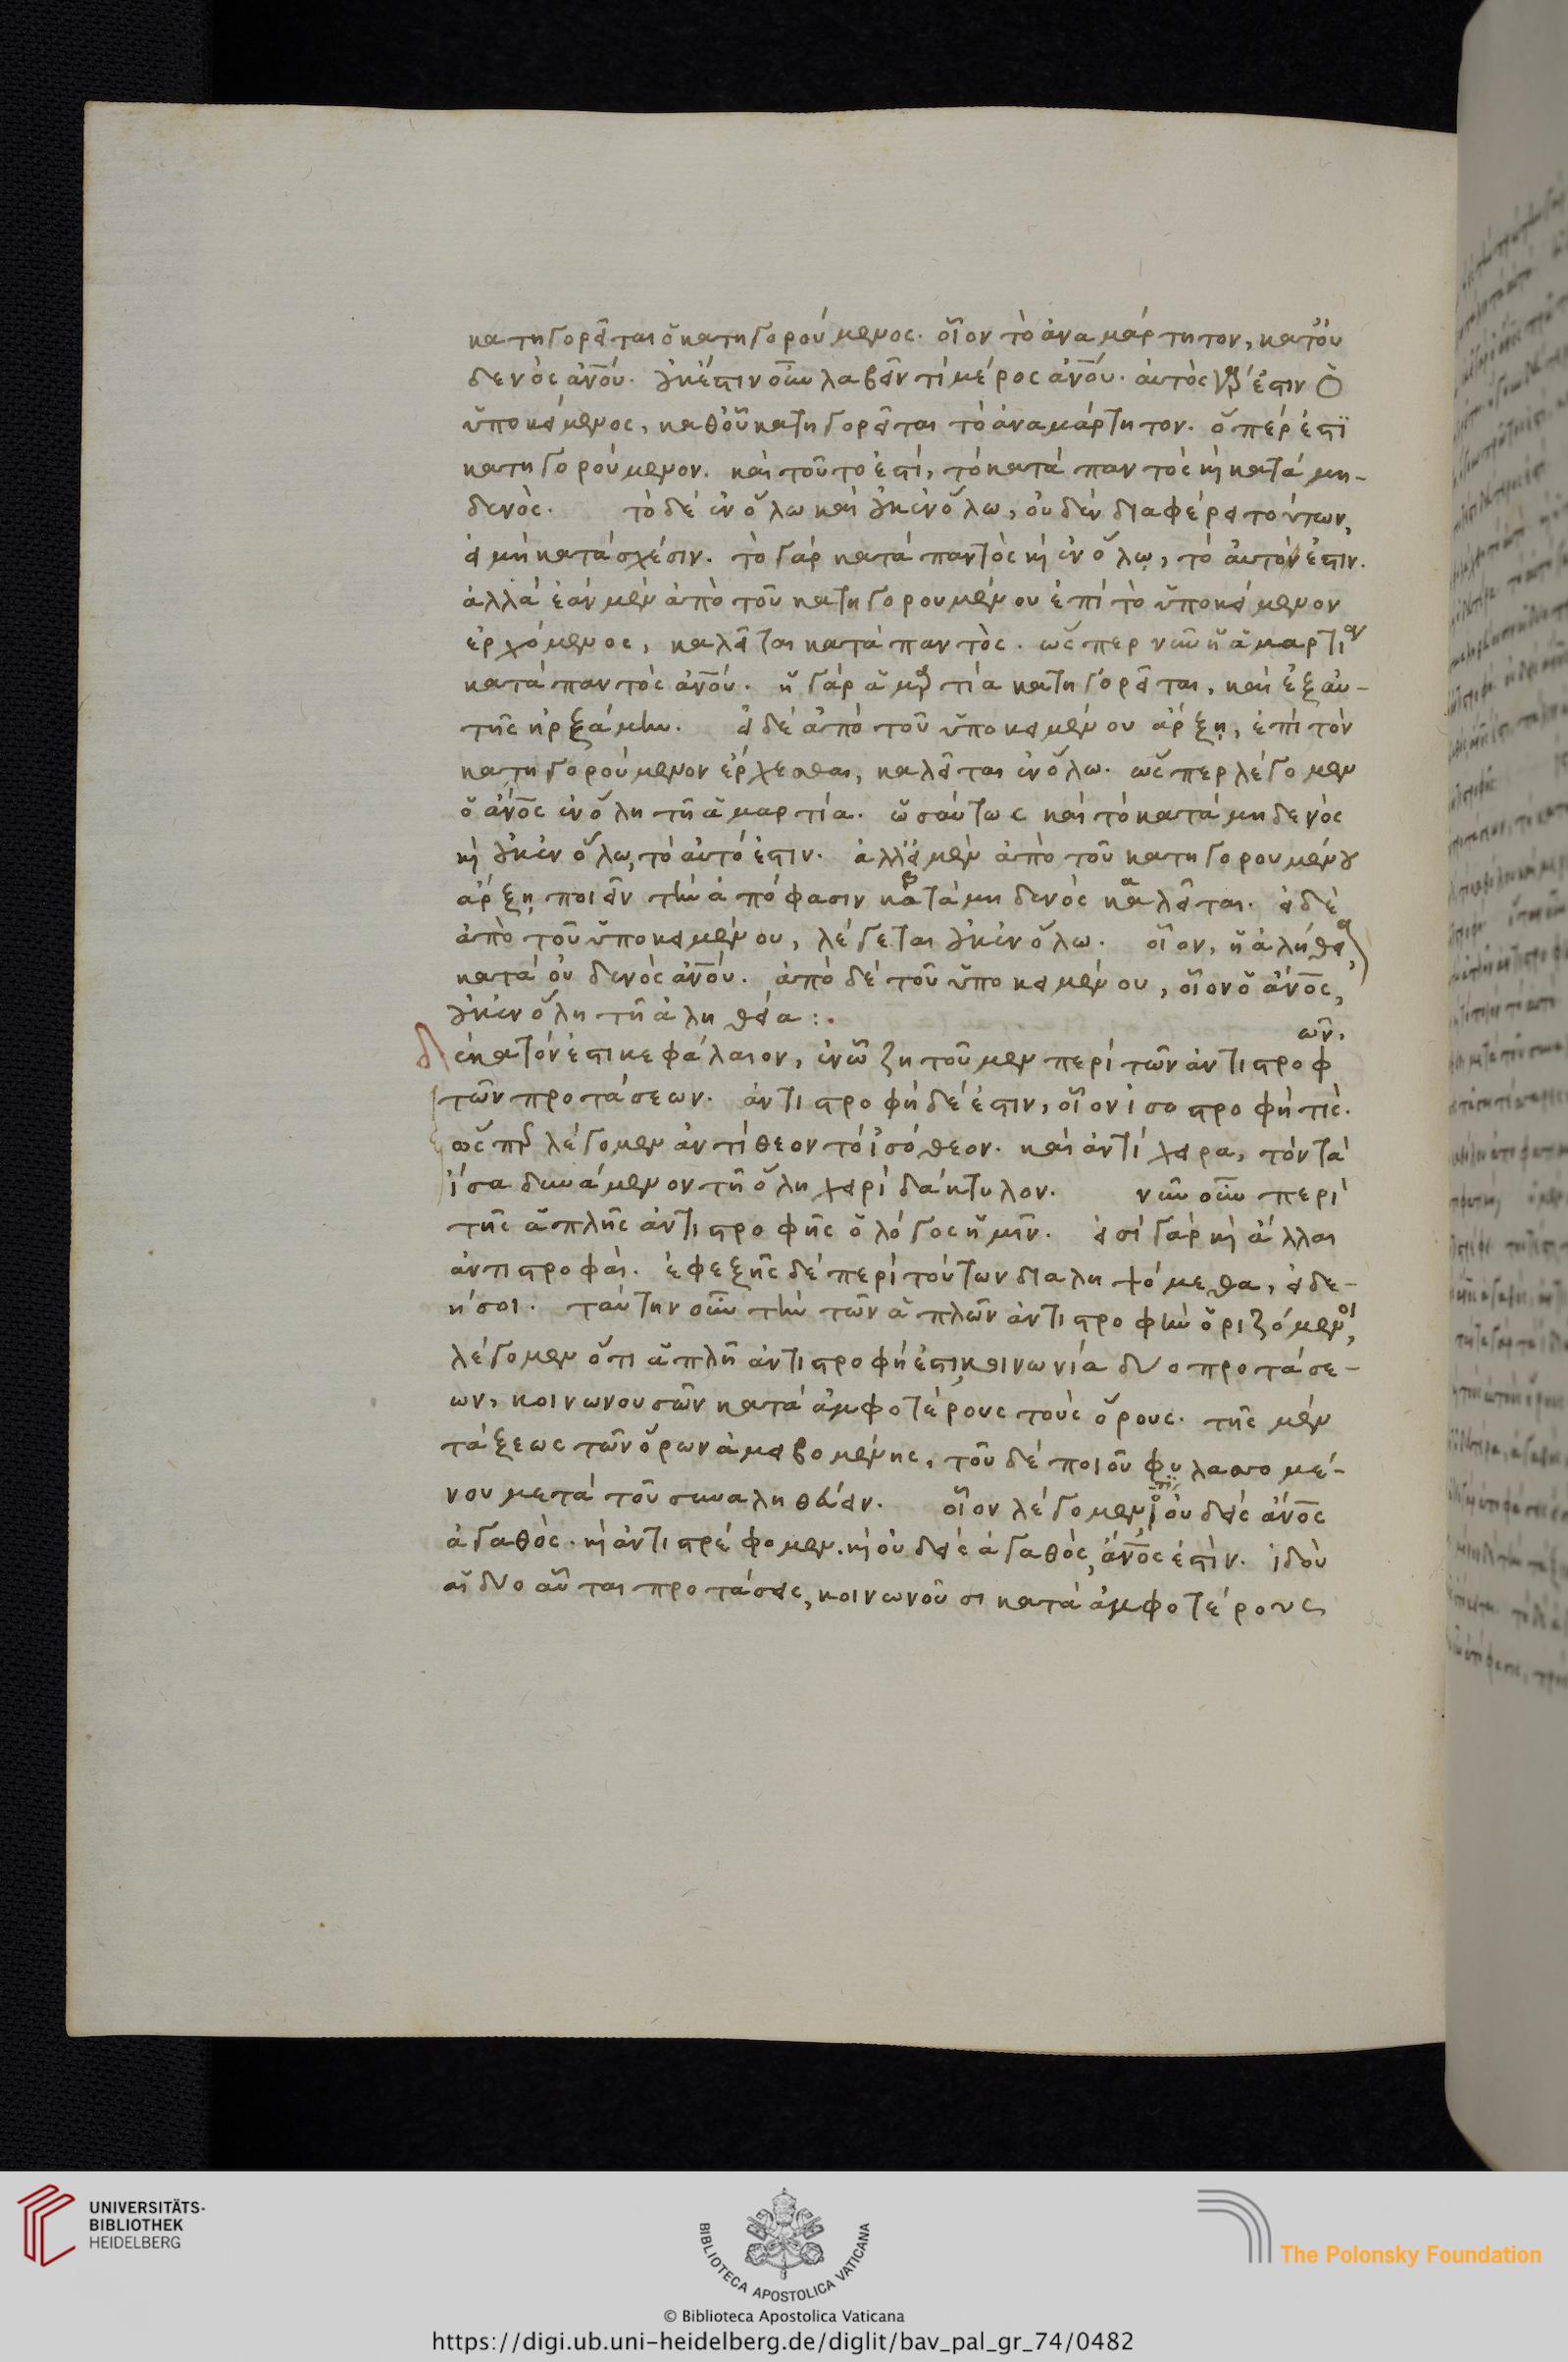 κατηγορεῖται ὁ κατηγορούμενος. οἷον τὸ ἀναμάρτητον, κατ' οὐ
δενὸς ἀν̅ο̅υ̅. οὐκ ἔστιν οὖν λαβεῖν τὶ μέρος ἀν̅ο̅υ̅. αὐτὸς γάρ ἐστιν ὁ
ὑποκείμενος, καθ' οὗ κατηγορεῖται τὸ ἀναμάρτητον. ὅπέρ ἐστι
κατηγορούμενον. καὶ τοῦτο ἐστί, τὸ κατὰ παντὸς κὴ κατὰ μη-
δενὸς. τὸ δὲ ἐν ὅλω καὶ οὐκ ἐν ὅλω, οὐδὲν διαφέρει τούτων,
εἰ μὴ κατὰ σχέσιν. τὸ γὰρ κατὰ παντὸς κὴ ἐν ὅλῳ, τὸ αὐτόν ἐστιν.
ἀλλὰ ἐὰν μὲν ἀπὸ τοῦ κατηγορουμένου ἐπὶ τὸ ὑποκείμενον
ἐρχόμενος, καλεῖται κατὰ παντὸς. ὥσπερ νῦν ἡ ἁμαρτία
κατὰ παντὸς ἀν̅ο̅υ̅. ἡ γὰρ ἁμαρτία κατηγορεῖται, καὶ ἐξ αὐ-
τῆς ἠρξάμην. εἰ δὲ ἀπὸ τοῦ ὑποκειμένου ἄρξῃ, ἐπὶ τὸν
κατηγορούμενον ἔρχεσθαι, καλεῖται ἐν ὅλω. ὥσπερ λέγομεν
ὁ ἄν̅ο̅ς̅ ἐν ὅλη τῆ ἁμαρτία. ὡσαύτως καὶ τὸ κατὰ μηδενὸς
κὴ οὐκ ἐν ὅλω, τὸ αὐτό ἐστιν. ἀλλ' εἰ μὲν ἀπὸ τοῦ κατηγορουμένου
ἄρξῃ ποιεῖν τὴν ἀπόφασιν κατὰ μηδενὸς καλεῖται. εἰ δὲ
ἀπὸ τοῦ ὑποκειμένου, λέγεται οὐκ ἐν ὅλω. οἷον, ἡ ἀλήθεια,
κατὰ οὐδενὸς ἀν̅ο̅υ̅. ἀπὸ δὲ τοῦ ὑποκειμένου, οἷον ὁ ἄν̅ο̅ς̅,
οὐκ ἐν ὅλη τῆ ἀληθεία :.
δέκατόν ἐστι κεφάλαιον, ἐν ὧ ζητοῦμεν περὶ τῶν ἀντιστροφῶν,
τῶν προτάσεων. ἀντιστροφὴ δέ ἐστιν, οἷον ἰσοστροφή τις.
ὥσπερ λέγομεν ἀντίθεον τὸ ἰσόθεον. καὶ ἀντίχειρα, τόν τὰ
ἴσα δυνάμενον τῆ ὅλη χειρὶ δάκτυλον. νῦν οὖν περὶ
τῆς ἁπλῆς ἀντιστροφῆς ὁ λόγος ἡμῖν. εἰσὶ γὰρ κὴ ἄλλαι
ἀντιστροφαὶ. ἐφεξῆς δὲ περὶ τούτων διαληψόμεθα, εἰ δε-
ήσοι. ταύτην οὖν τὴν τῶν ἁπλῶν ἀντιστροφὴν ὁριζόμενοι,
λέγομεν ὅτι ἁπλῆ ἀντιστροφή ἐστι, κοινωνία δύο προτάσε-
ων, κοινωνουσῶν κατὰ ἀμφοτέρους τοὺς ὅρους. τῆς μὲν
τάξεως τῶν ὅρων ἀμειβομένης, τοῦ δὲ ποιοῦ φυλασσομέ-
νου μετὰ τοῦ συναληθεύειν. οἷον λέγομεν ὅτι οὐδεὶς ἄν̅ο̅ς̅
ἀγαθὸς. κὴ ἀντιστρέφομεν. κὴ οὐδεὶς ἀγαθὸς, ἄν̅ο̅ς̅ ἐστὶν. ἰδοὺ
αἱ δύο αὗται προτάσεις, κοινωνοῦσι κατὰ ἀμφοτέρους
UNIVERSITÄTS-
BIBLIOTHEK
HEIDELBERG
BIBLIOTECA APOSTOLICA VATICANA
The Polonsky Foundation
© Biblioteca Apostolica Vaticana
https://digi.ub.uni-heidelberg.de/diglit/bav_pal_gr_74/0482